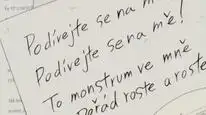 Podívejte se na m
Podívejte se na mě!
To monstrum ve mně
Pořád roste a roste